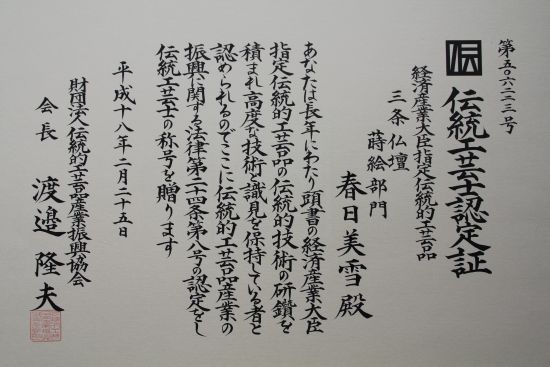 第五〇六二三号
伝
伝統工芸士認定証
経済産業大臣指定伝統的工芸品
三条仏壇
蒔絵部門
春日美雪殿
あなたは長年にわたり頭書の経済産業大臣
指定伝統的工芸品の伝統的技術の研鑽を
積まれ高度な技術と識見を保持している者と
認められるのでここに伝統的工芸品産業の
振興に関する法律第二十四条第八号の認定をし
伝統工芸士の称号を贈ります
平成十八年二月二十五日
財団法人伝統的工芸品産業振興協会
会長 渡邉隆夫